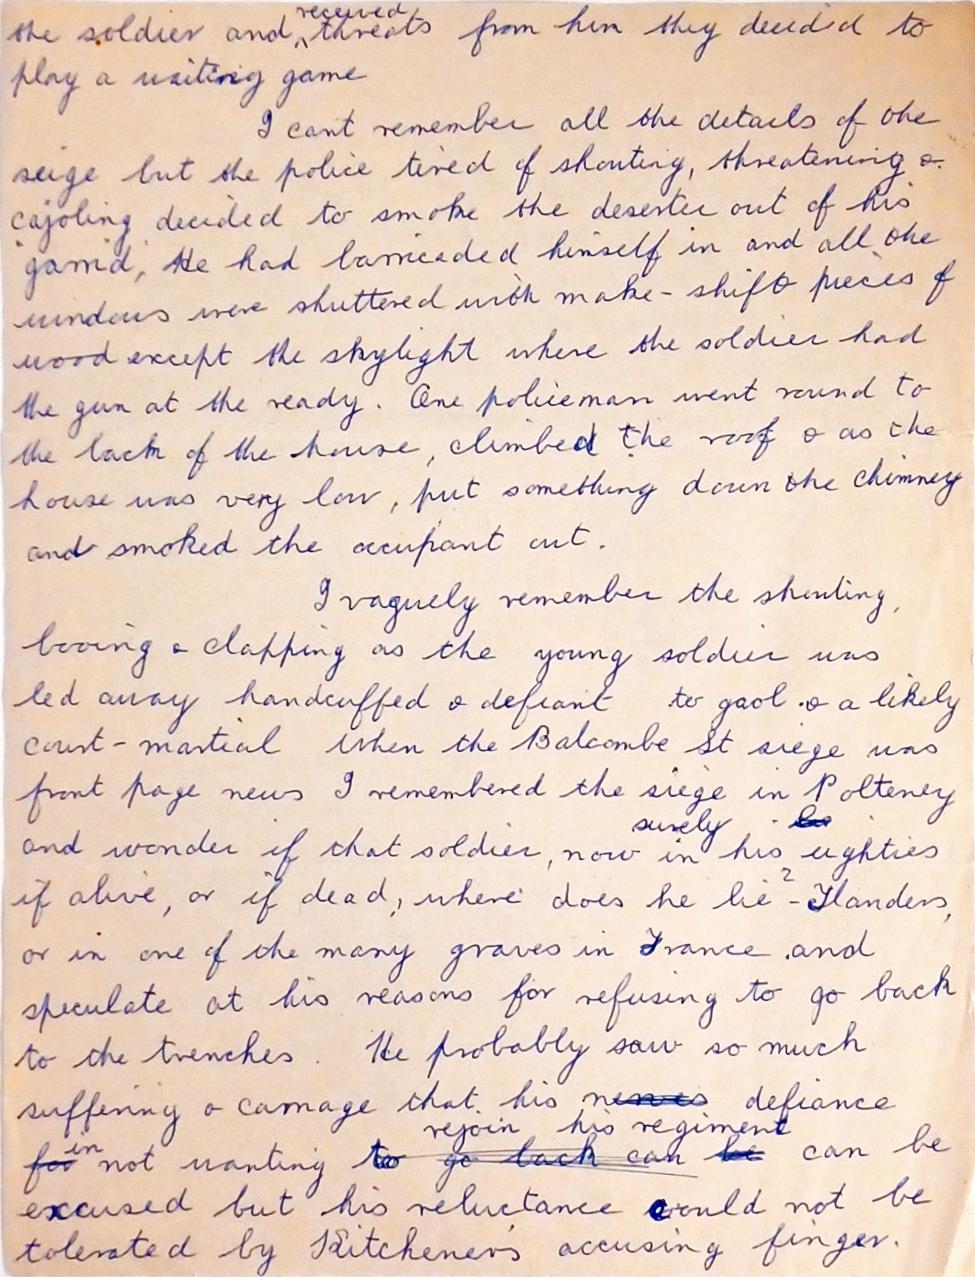 the soldier and received threats from him they decid'd to
play a waiting game
I cant remember all the details of the
seige but the police tired of shouting, threatening &
cajoling decided to smoke the deserter out of his
He had barricaded himself in and all the
windows were shuttered with make-shift pieces of
wood except the skylight where the soldier had
the gun at the ready. One policeman went round to
the back of the house, climbed the roof & as the
house was very low, put something down the chimney
and smoked the occupant out.
I vaguely remember the shouting,
booing & clapping as the young soldier was
led away handcuffed & defiant to gaol & a likely
court-martial When the Balcombe St siege was
front page news I remembered the siege in Polteney
and wonder if that soldier, now surely in his eighties
if alive, or if dead, where does he lie? - Flanders,
or in one of the many graves in France and
speculate at his reasons for refusing to go back
to the trenches. He probably saw so much
suffering & carnage that his nerves defiance
for in not wanting to rejoin his regiment go back can be can be
excused but his reluctance could not be
tolerated by Kitchener's accusing finger.